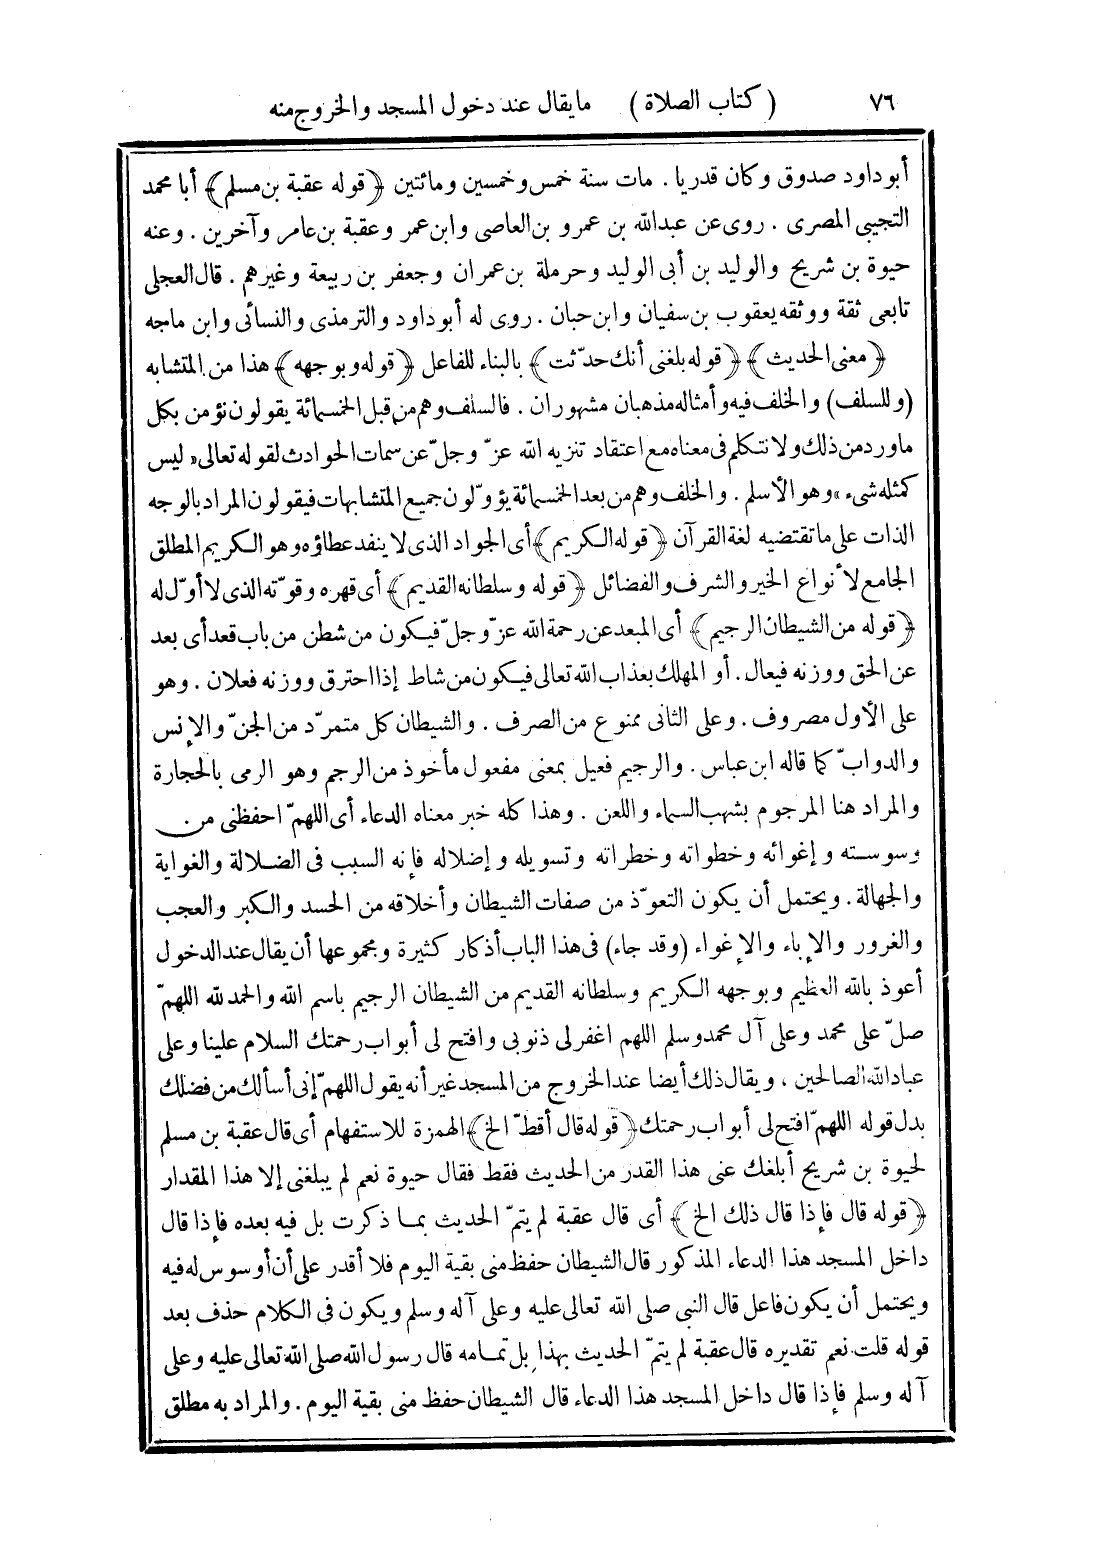 ٧٦ ( كتاب الصلاة ) ما يقال عند دخول المسجد والخروج منه
أبو داود صدوق وكان قدريا . مات سنة خمس وخمسين ومائتين ﴿قوله عقبة بن مسلم﴾ أبا محمد
التجيبى المصرى . روى عن عبدالله بن عمرو بن العاصى وابن عمر وعقبة بن عامر وآخرين . وعنه
حيوة بن شريح والوليد بن أبى الوليد وحرملة بن عمران وجعفر بن ربيعة وغيرهم . قال العجلى
تابعى ثقة ووثقه يعقوب بن سفيان وابن حبان . روى له أبوداود والترمذى والنسائى وابن ماجه
﴿معنى الحديث﴾ ﴿قوله بلغنى أنك حدّثت﴾ بالبناء للفاعل ﴿قوله وبوجهه﴾ هذا من المتشابه
(وللسلف) والخلف فيه وأمثاله مذهبان مشهوران . فالسلف وهم من قبل الخمسمائة يقولون نؤمن بكل
ما ورد من ذلك ولا نتكلم فى معناه مع اعتقاد تنزيه الله عزّ وجلّ عن سمات الحوادث لقوله تعالى «ليس
كمثله شىء» وهو الأسلم . والخلف وهم من بعد الخمسمائة يؤوّلون جميع المتشابهات فيقولون المراد بالوجه
الذات على ما تقتضيه لغة القرآن ﴿قوله الكريم﴾ أى الجواد الذى لا ينفد عطاؤه وهو الكريم المطلق
الجامع لأنواع الخير والشرف والفضائل ﴿قوله وسلطانه القديم﴾ أى قهره وقوّته الذى لا أوّل له
﴿قوله من الشيطان الرجيم﴾ أى المبعد عن رحمة الله عزّ وجلّ فيكون من شطن من باب قعد أى بعد
عن الحق ووزنه فيعال . أو المهلك بعذاب الله تعالى فيكون من شاط إذا احترق ووزنه فعلان . وهو
على الأول مصروف . وعلى الثانى ممنوع من الصرف . والشيطان كل متمرّد من الجنّ والإنس
والدوابّ كما قاله ابن عباس . والرجيم فعيل بمعنى مفعول مأخوذ من الرجم وهو الرمى بالحجارة
والمراد هنا المرجوم بشهب السماء واللعن . وهذا كله خبر معناه الدعاء أى اللهمّ احفظنى من
وسوسته وإغوائه وخطواته وخطراته وتسويله وإضلاله فإنه السبب فى الضلالة والغواية
والجهالة . ويحتمل أن يكون التعوّذ من صفات الشيطان وأخلاقه من الحسد والكبر والعجب
والغرور والإباء والإغواء (وقد جاء) فى هذا الباب أذكار كثيرة ومجموعها أن يقال عند الدخول
أعوذ بالله العظيم وبوجهه الكريم وسلطانه القديم من الشيطان الرجيم باسم الله والحمد لله اللهمّ
صلّ على محمد وعلى آل محمد وسلم اللهم اغفر لى ذنوبى وافتح لى أبواب رحمتك السلام علينا وعلى
عباد الله الصالحين ، ويقال ذلك أيضا عند الخروج من المسجد غير أنه يقول اللهمّ إنى أسألك من فضلك
بدل قوله اللهمّ افتح لى أبواب رحمتك ﴿قوله قال أقطّ الخ﴾ الهمزة للاستفهام أى قال عقبة بن مسلم
لحيوة بن شريح أبلغك عنى هذا القدر من الحديث فقط فقال حيوة نعم لم يبلغنى إلا هذا المقدار
﴿قوله قال فإذا قال ذلك الخ﴾ أى قال عقبة لم يتمّ الحديث بما ذكرت بل فيه بعده فإذا قال
داخل المسجد هذا الدعاء المذكور قال الشيطان حفظ منى بقية اليوم فلا أقدر على أن أوسوس له فيه
ويحتمل أن يكون فاعل قال النبى صلى الله تعالى عليه وعلى آله وسلم ويكون فى الكلام حذف بعد
قوله قلت نعم تقديره قال عقبة لم يتمّ الحديث بهذا بل تمامه قال رسول الله صلى الله تعالى عليه وعلى
آله وسلم فإذا قال داخل المسجد هذا الدعاء قال الشيطان حفظ منى بقية اليوم . والمراد به مطلق